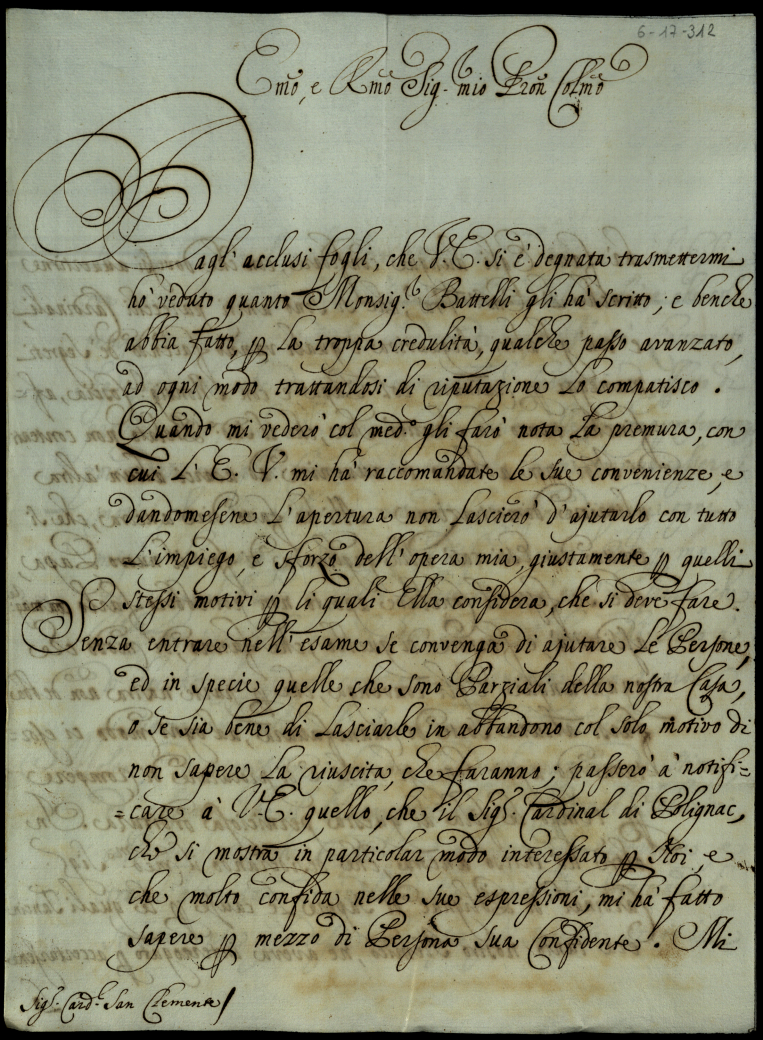 6-17-312
Emo, e Rmo Sig.r mio Pron Colmo
Dagl' acclusi fogli, che V. E. si è degnata trasmettermi
hò veduto quanto Monsig.r Battelli gli hà scritto; e benche
abbia fatto, p la troppa credulità, qualche passo avanzato,
ad ogni modo trattandosi di riputazione lo compatisco.
Quando mi vederò col med.o gli farò nota la premura, con
cui l' E. V. mi hà raccomandate le sue convenienze, e
dandomesene l'apertura non lascierò d'ajutarlo con tutto
l'impiego, e sforzo dell' opera mia, giustamente p quelli
stessi motivi p li quali Ella considera, che si deve fare.
Senza entrare nell' esame se convenga di ajutare le Persone,
ed in specie quelle che sono Parziali della nostra Casa,
o se sia bene di lasciarle in abbandono col solo motivo di
non sapere la riuscita, che faranno; passerò à notifi=
=care à V. E. quello, che il Sig.r Cardinal di Polignac,
che si mostra in particolar modo interessato p Noi, e
che molto confida nelle sue espressioni, mi hà fatto
sapere p mezzo di Persona sua Confidente. Mi
Sig.r Card.l San Clemente